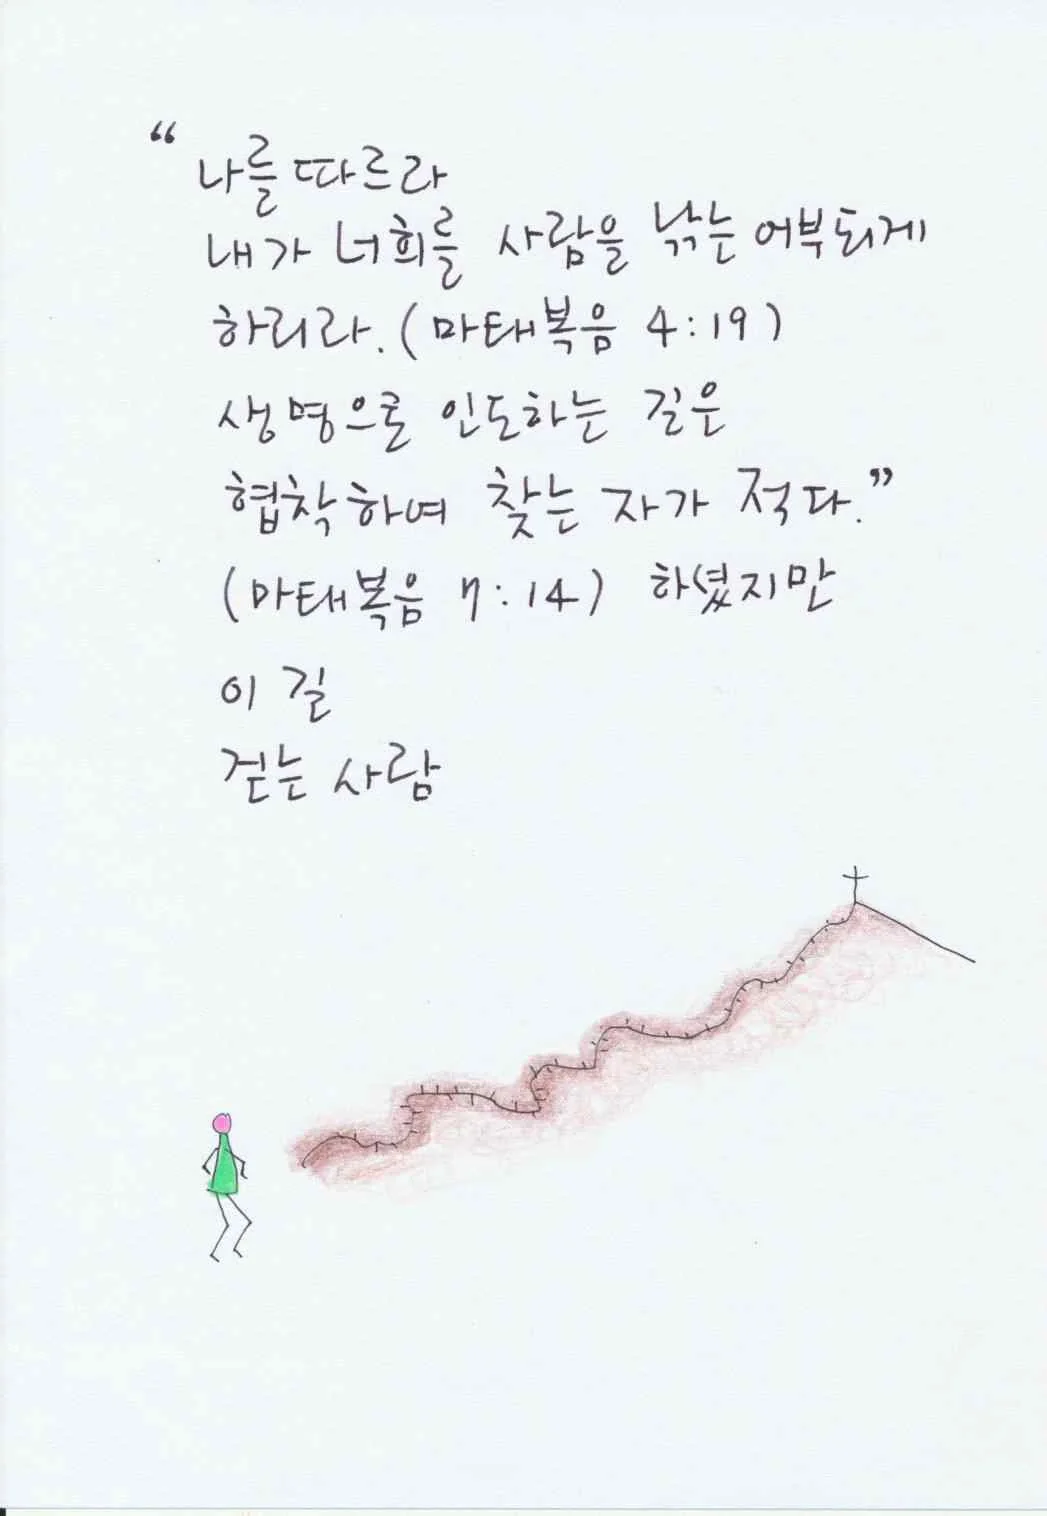 “나를 따르라
내가 너희를 사람을 낚는 어부되게
하리라. (마태복음 4:19)
생명으로 인도하는 길은
협착하여 찾는 자가 적다.”
(마태복음 7:14) 하셨지만
이 길
걷는 사람